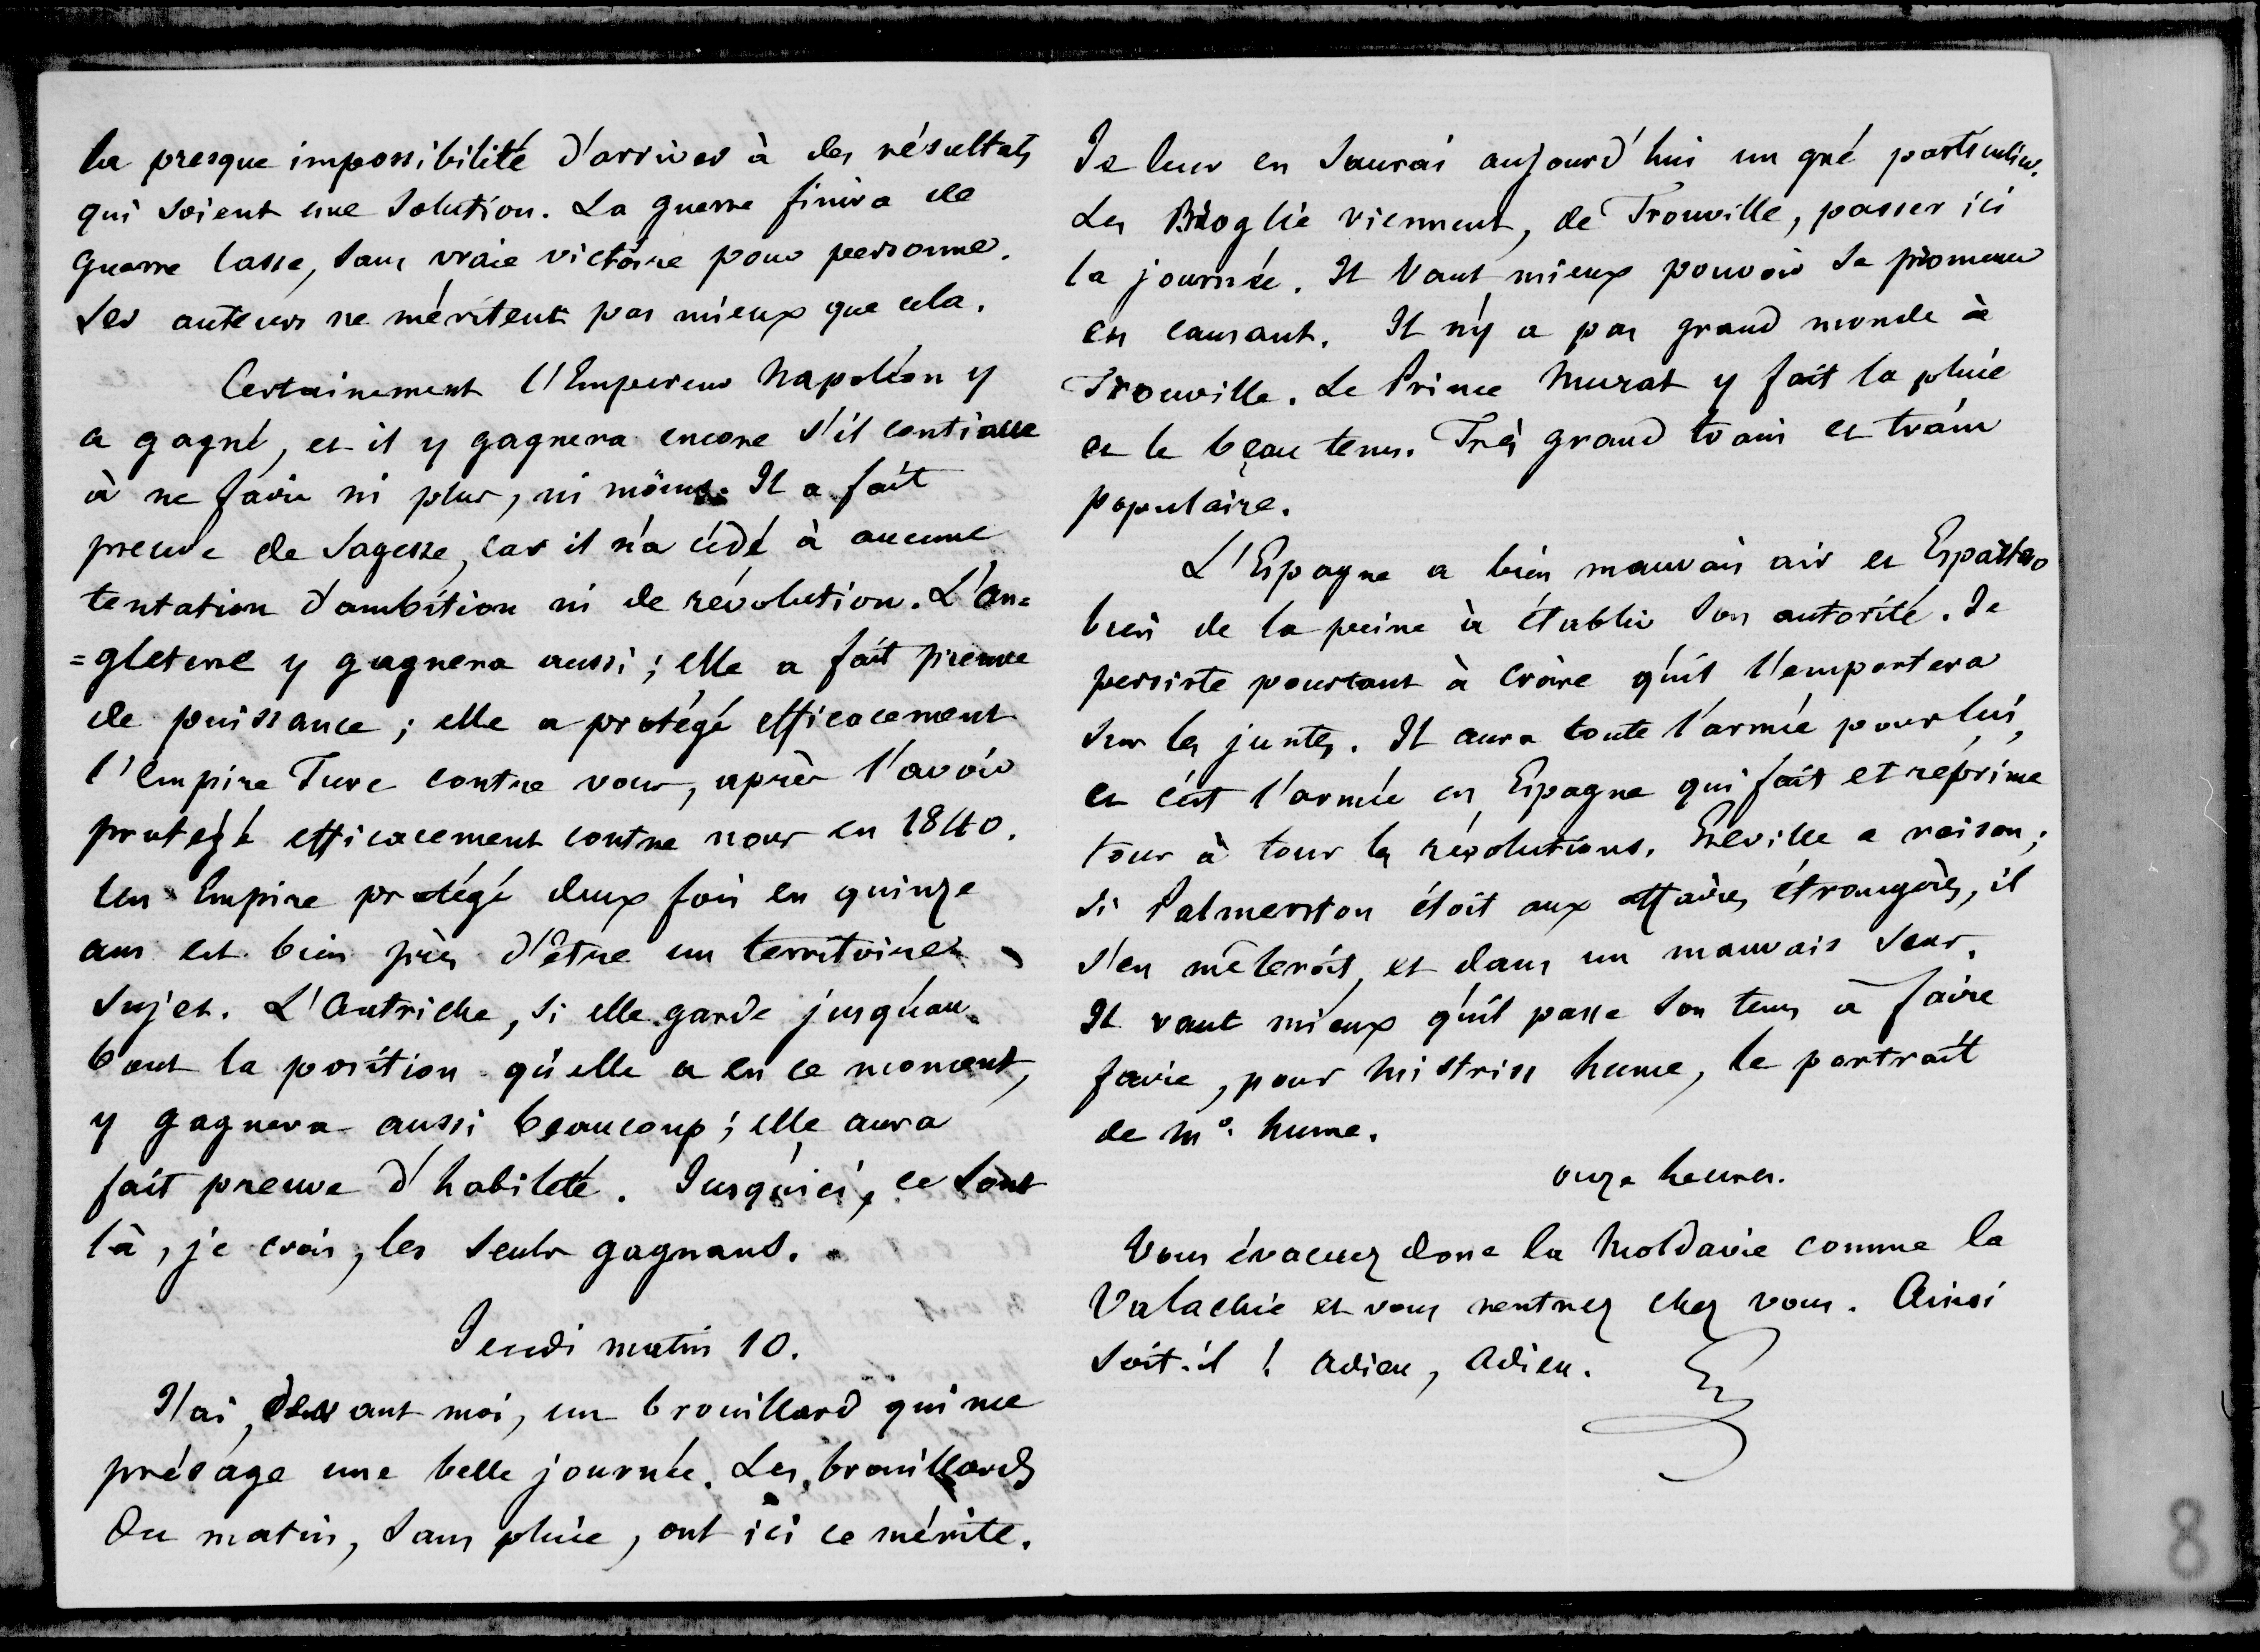 la presque impossibilité d'arriver à des résultats
qui soient une solution. La guerre finira de
guerre lasse, sans vraie victoire pour personne.
Ses auteurs ne méritent pas mieux que cela.
Certainement l'Empereur Napoléon y
a gagné, et il y gagnera encore s'il continue
à ne faire ni plus, ni moins. Il a fait
preuve de sagesse, car il n'a cédé à aucune
tentation d'ambition ni de révolution. L'An=
=gleterre y gagnera aussi ; elle a fait preuve
de puissance ; elle a protégé efficacement
l'Empire Turc contre vous, après l'avoir
protégé efficacement contre nous en 1840.
Un Empire protégé deux fois en quinze
ans est bien près d'être un territoire
sujet. L'Autriche, si elle garde jusqu'au
bout la position qu'elle a en ce moment,
y gagnera aussi beaucoup ; elle aura
fait preuve d'habileté. Jusqu'ici, ce sont
là, je crois, les seuls gagnans.
Jeudi matin 10.
J'ai, devant moi, un brouillard qui me
présage une belle journée. Les brouillards
du matin, sans pluie, ont ici ce mérite.
Je leur en saurai aujourd'hui un gré particulier.
Les Broglie viennent, de Trouville, passer ici
la journée. Il vaut mieux pouvoir se promener
en causant. Il n'y a pas grand monde à
Trouville. Le Prince Murat y fait la pluie
et le beau tems. Très grand train et train
populaire.
L'Espagne a bien mauvais air et Espartero
bien de la peine à établir son autorité. Je
persiste pourtant à croire qu'il l'emportera
sur les juntes. Il aura toute l'armée pour lui,
et c'est l'armée en Espagne qui fait et réprime
tour à tour les révolutions. Greville a raison ;
si Palmerston étoit aux affaires étrangères, il
s'en mêleroit, et dans un mauvais sens.
Il vaut mieux qu'il passe son tems à faire
faire, pour Mistriss Hume, le portrait
de Mr. Hume.
onze heures.
Vous évacuez donc la Moldavie comme la
Valachie et vous rentrez chez vous. Ainsi
soit-il ! Adieu, Adieu.
8